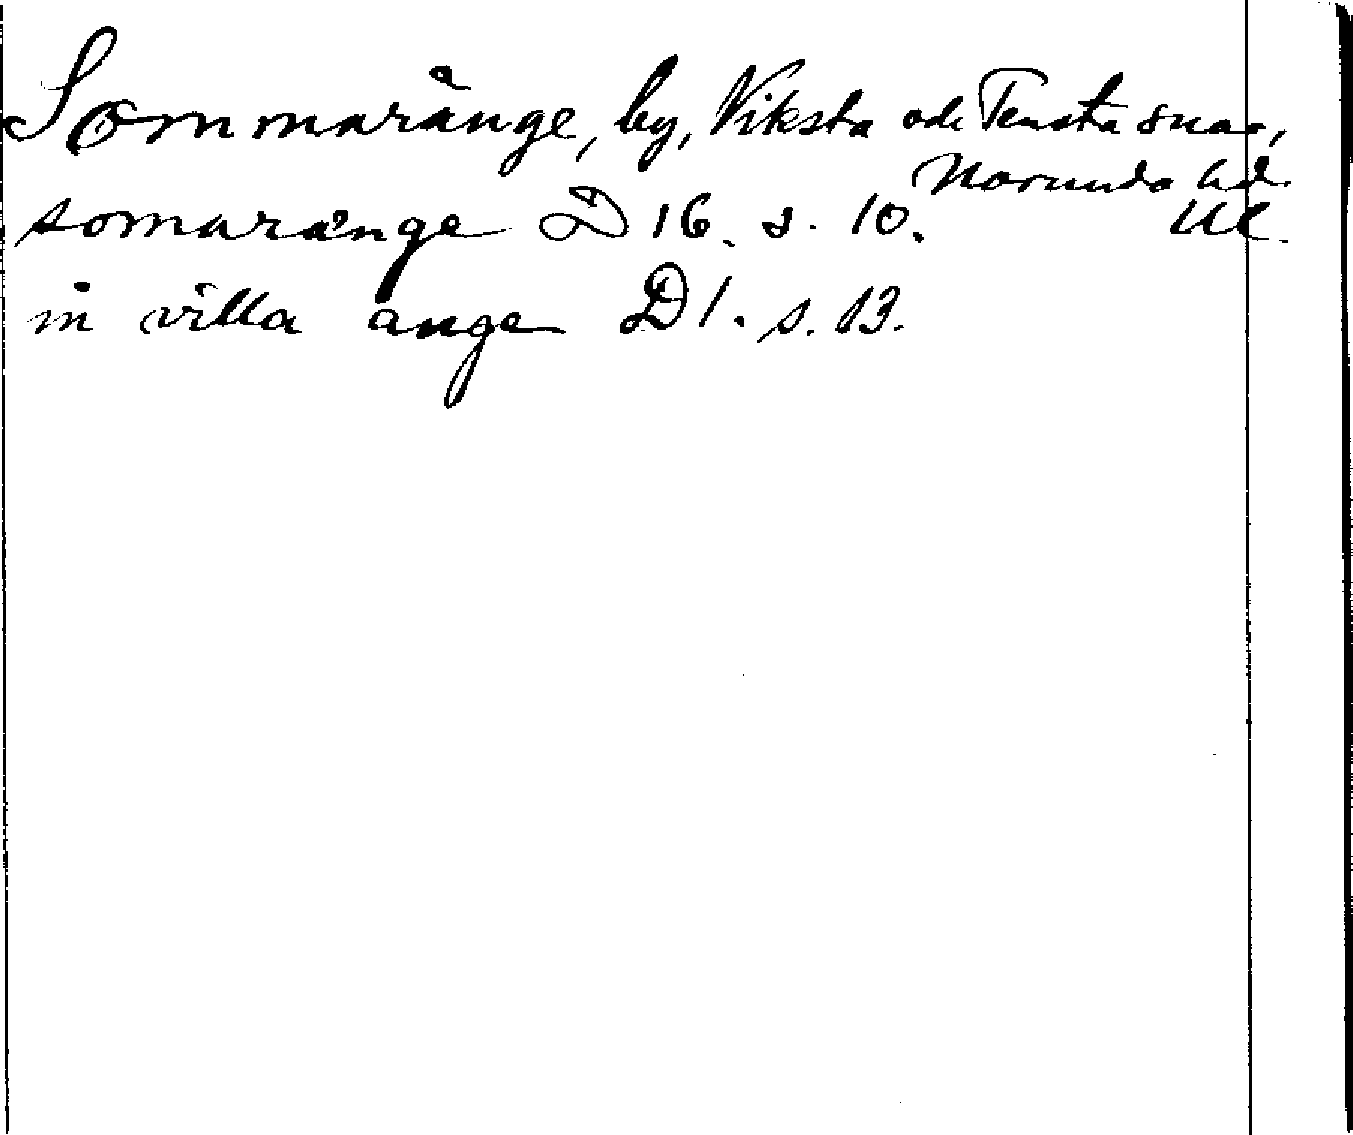 Sommaränge, by, Viksta och Tensta snar,
Norunda hd.
somarænge D 16. s. 10. Ul.
in villa ange D 1. s. 13.